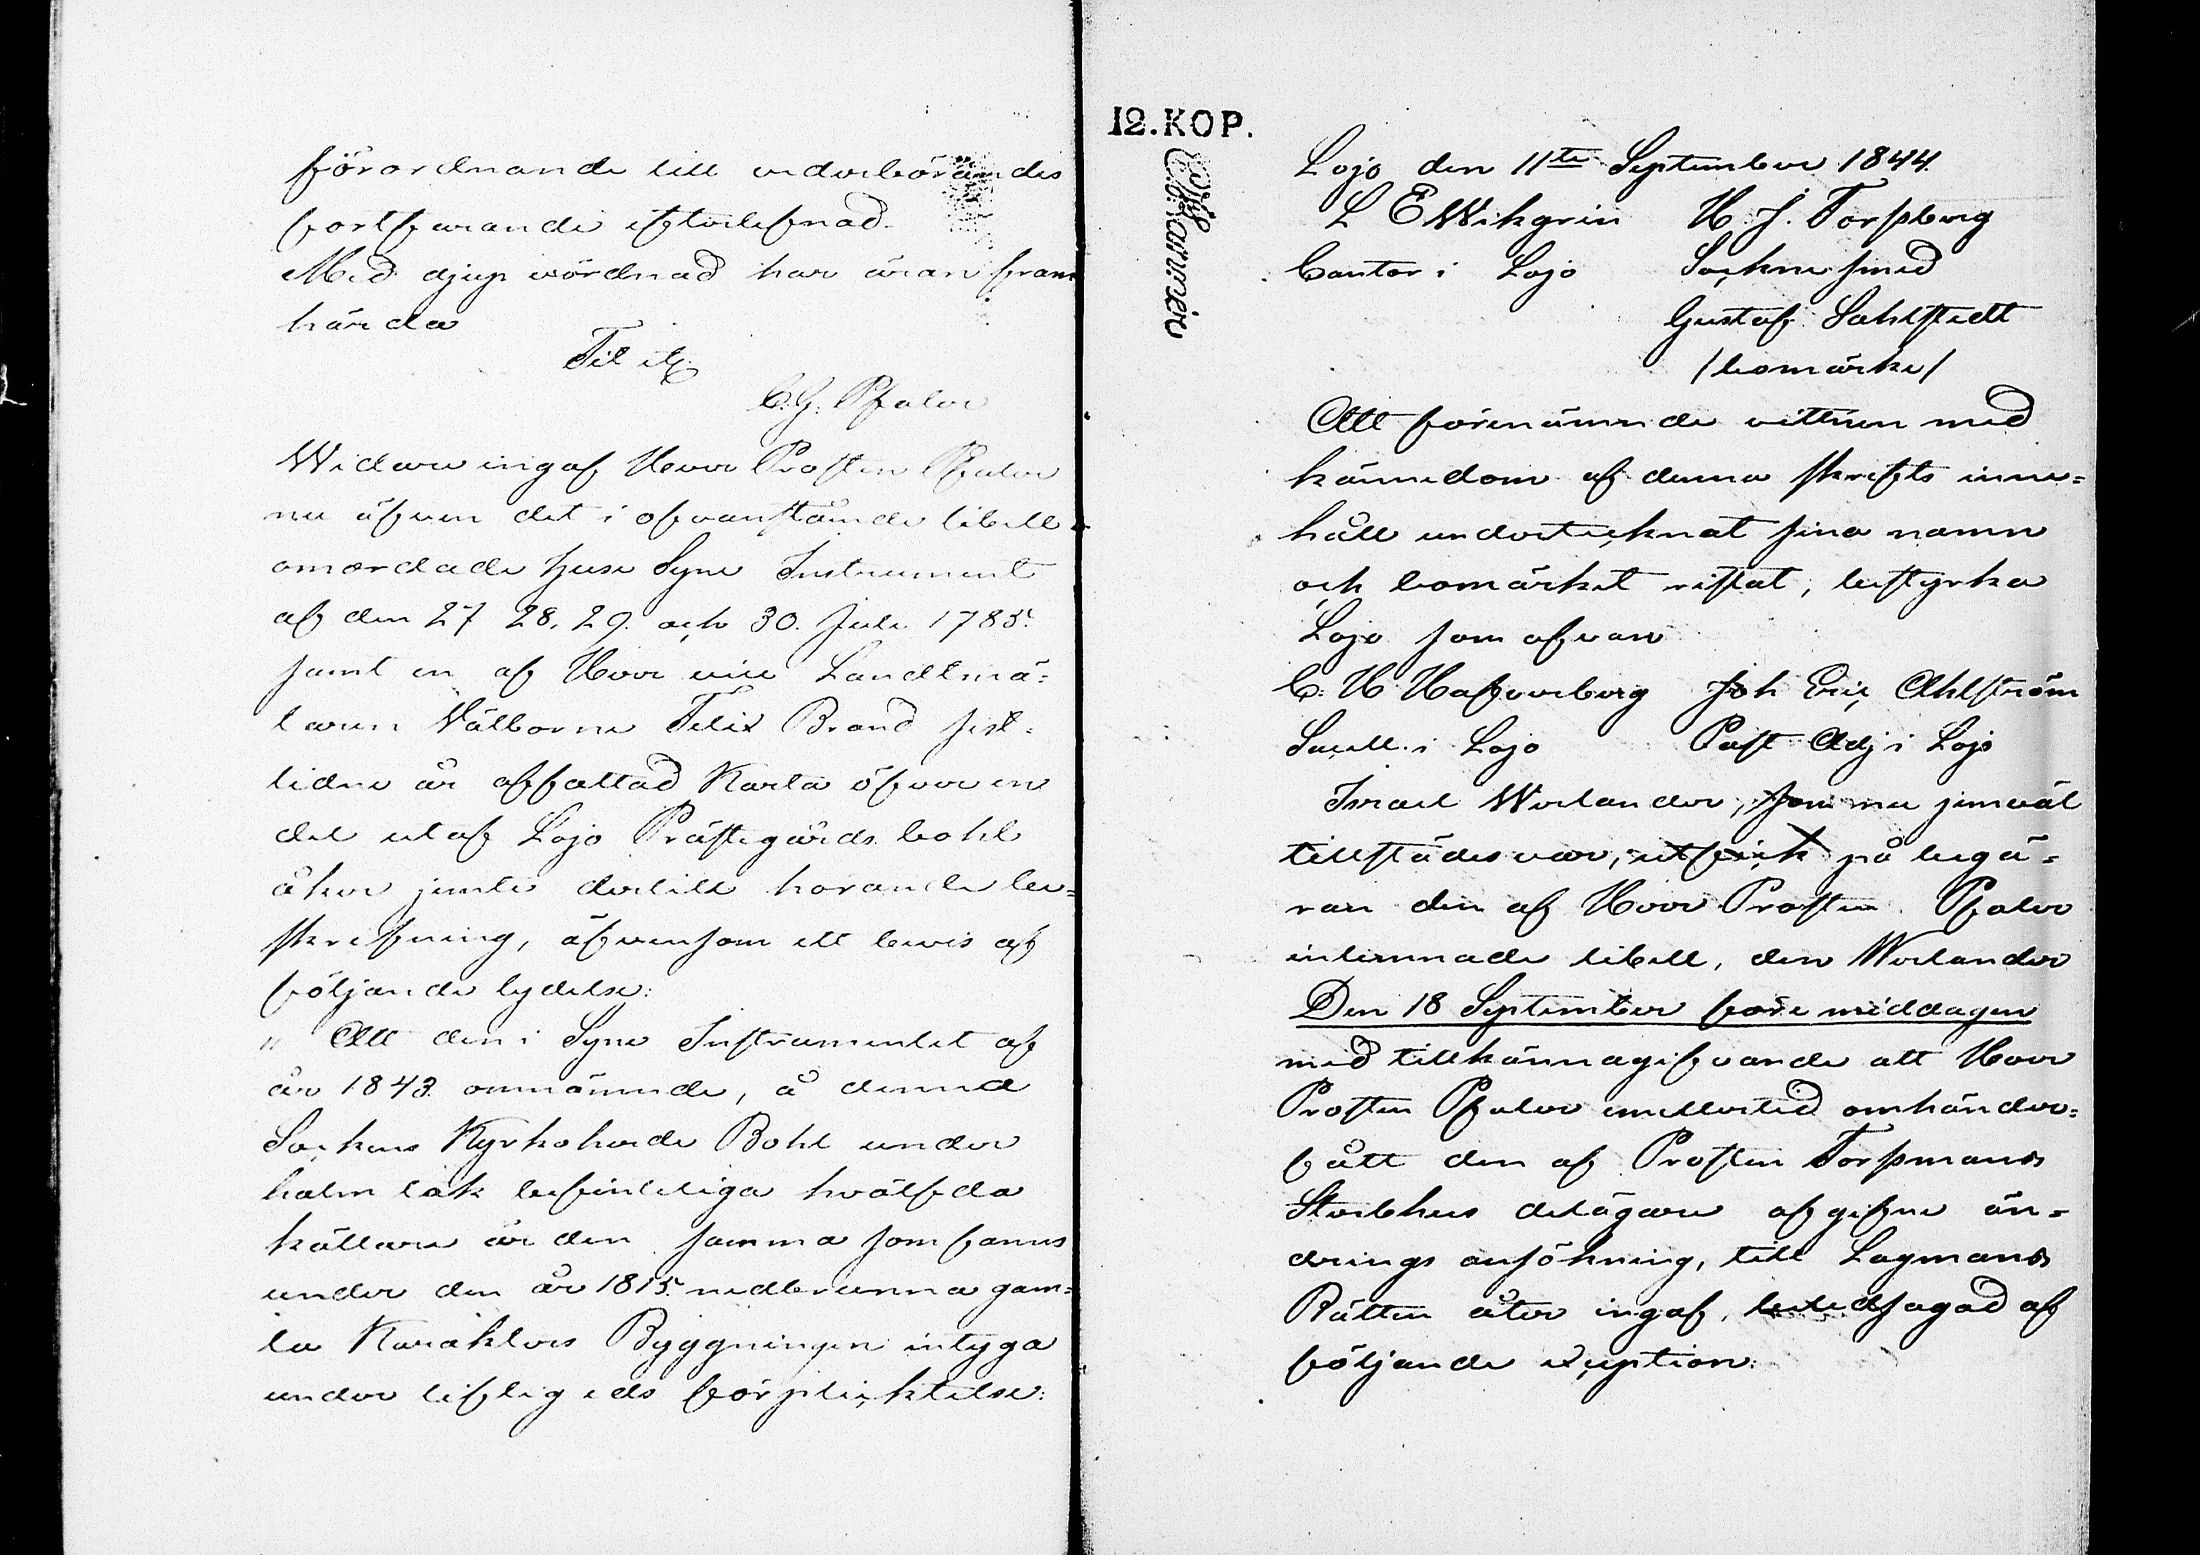 förordnande till vederbörandes
fortfarande efterlefnad.
Med djup vördnad har äran fram
härda
Tit etc
C. G. Pfaler
Widare ingaf Herr Prosten Pfaler
nu äfven det i ofvanstående libell
omordade huse Syne Instrument
af den 27 28, 29. och 30. Juli 1785.
samt en af Herr vice Landtmä-
taren Välborne Felix Brand sist-
lidne år affattad Karta öfver en
del utaf Lojo Prästegårds bohl
åker jemte dertill horande be-
skrifning, äfvensom ett bevis af
följande lydelse:
" Att den i Syne Instrumentet af
år 1843. omnämnde, å denna
Sockens Kyrkoherde Bohl under
halm tak befinteliga hvälfda
källare är den samma som fanns
under den år 1815. nedbrunna gam-
la Karakters Byggningen intyga
under liflig eds förplicktelse:
12. KOP.
Lojo den 11te September 1844.
L E Wikgrin H. J. Forssberg
Cantor i Lojo Sockne smed
Gustaf Sahlstedt
/bomärke/
Att förenämnde vittnen med
kännedom af denna skrifts inne-
håll undertecknat sina namn
och bomärket ristat, bestyrka
Lojo som ofvan
C. H Hafverberg Joh Eric Ahlström
Sacell. i Lojo Past Adj i Lojo
Israel Werlander, som nu jemväl
tillstädes var, utfick på begä-
ran den af Herr Prosten Pfaler
inlemnade libell, den Werlander
Den 18 September före middagen
med tillkännagifvande att Herr
Prosten Pfaler emellertid omhänder-
fått den af Prosten Forssmans
Sterbhus delägare afgifne än-
drings ansökning, till Lagmans
Rätten åter ingaf, beledsagad af
följande exception: